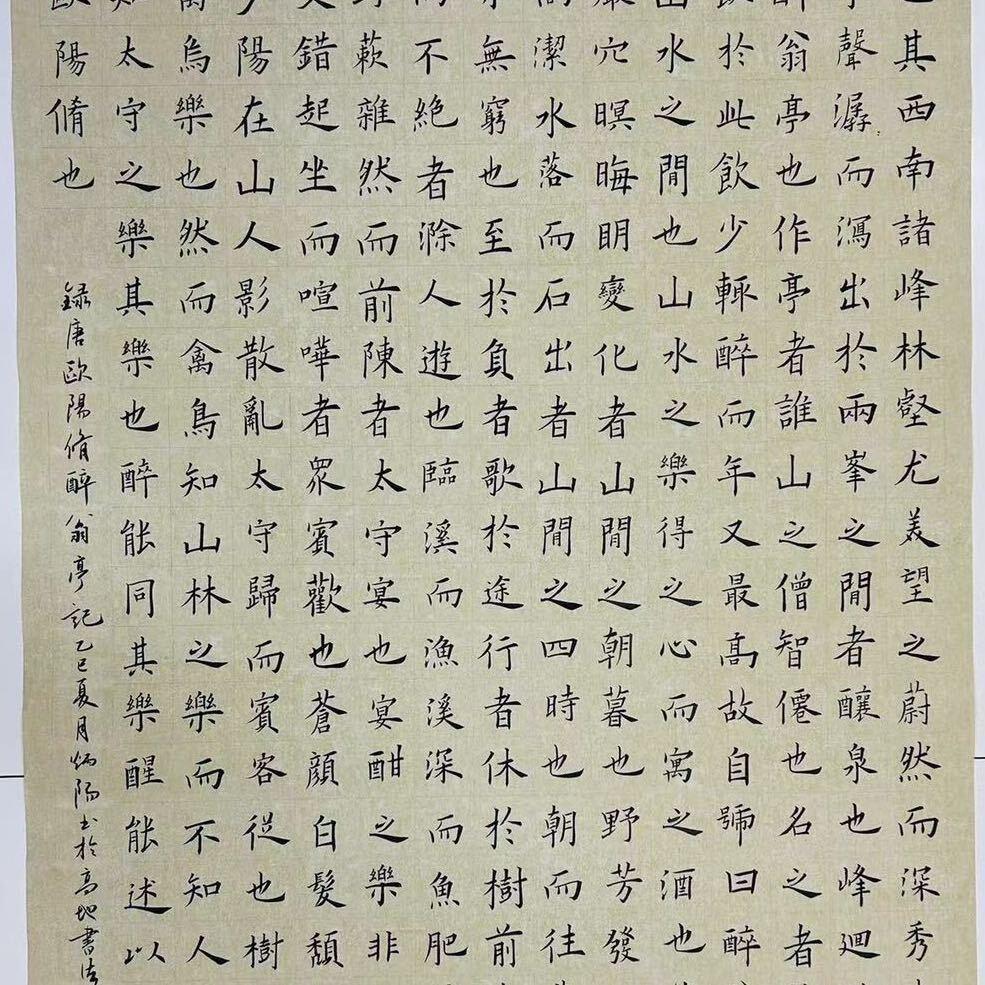 其西南諸峰林壑尤美望之蔚然而深秀
聲潺而瀉出於兩峯之間者釀泉也峰迴
翁亭也作亭者誰山之僧智僊也名之者
飲於此飲少輒醉而年又最高故自號曰醉
水之間也山水之樂得之心而寓之酒也
穴暝晦明變化者山間之朝暮也野芳發
潔水落而石出者山間之四時也朝而往
無窮也至於負者歌於途行者休於樹前
不絶者滁人遊也臨溪而漁溪深而魚肥
蔌雜然而前陳者太守宴也宴酣之樂非
錯起坐而喧嘩者眾賓歡也蒼顔白髮頹
陽在山人影散亂太守歸而賓客從也樹
鳥樂也然而禽鳥知山林之樂而不知人
太守之樂其樂也醉能同其樂醒能述以
陽脩也
録唐歐陽脩醉翁亭記乙巳夏月炳陽書於高地書法